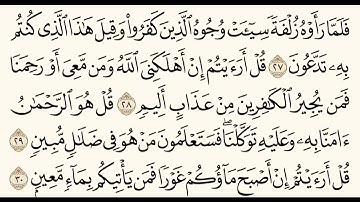 فَلَمَّا رَأَوْهُ زُلْفَةً سِيٓـَٔتْ وُجُوهُ ٱلَّذِينَ كَفَرُوا۟ وَقِيلَ هَٰذَا ٱلَّذِى كُنتُم
بِهِۦ تَدَّعُونَ ٢٧ قُلْ أَرَءَيْتُمْ إِنْ أَهْلَكَنِىَ ٱللَّهُ وَمَن مَّعِىَ أَوْ رَحِمَنَا
فَمَن يُجِيرُ ٱلْكَٰفِرِينَ مِنْ عَذَابٍ أَلِيمٍ ٢٨ قُلْ هُوَ ٱلرَّحْمَٰنُ
ءَامَنَّا بِهِۦ وَعَلَيْهِ تَوَكَّلْنَا ۖ فَسَتَعْلَمُونَ مَنْ هُوَ فِى ضَلَٰلٍ مُّبِينٍ ٢٩
قُلْ أَرَءَيْتُمْ إِنْ أَصْبَحَ مَآؤُكُمْ غَوْرًا فَمَن يَأْتِيكُم بِمَآءٍ مَّعِينٍۭ ٣٠